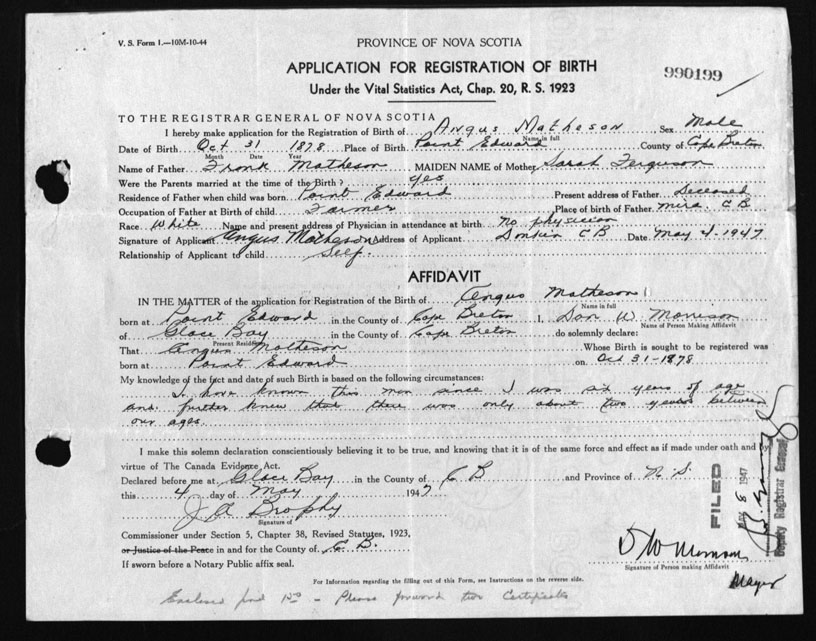 V. S. Form 1.—10M-10-44
PROVINCE OF NOVA SCOTIA
APPLICATION FOR REGISTRATION OF BIRTH
990199
Under the Vital Statistics Act, Chap. 20, R. S. 1923
TO THE REGISTRAR GENERAL OF NOVA SCOTIA
I hereby make application for the Registration of Birth of Angus Matheson Sex Male
Name in full
Date of Birth Oct 31 1878 Place of Birth Point Edward County of Cape Breton
Month Date Year
Name of Father Frank Matheson MAIDEN NAME of Mother Sarah Ferguson
Were the Parents married at the time of the Birth? yes
Residence of Father when child was born Point Edward Present address of Father Deceased
Occupation of Father at Birth of child Farmer Place of birth of Father Mira. C B
Race White Name and present address of Physician in attendance at birth No physician
Signature of Applicant Angus Matheson Address of Applicant Donkin C B Date May 4. 1947
Relationship of Applicant to child Self.
AFFIDAVIT
IN THE MATTER of the application for Registration of the Birth of Angus Matheson
Name in full
born at Point Edward in the County of Cape Breton I, Dan W. Morrison
Name of Person Making Affidavit
of Glace Bay in the County of Cape Breton do solemnly declare:
Present Residence
That Angus Matheson Whose Birth is sought to be registered was
born at Point Edward on Oct 31-1878
My knowledge of the fact and date of such Birth is based on the following circumstances:
I have known this man since I was six years of age
and further knew that there was only about two years between
our ages
I make this solemn declaration conscientiously believing it to be true, and knowing that it is of the same force and effect as if made under oath and by
virtue of The Canada Evidence Act.
Declared before me at Glace Bay in the County of C B and Province of N S
this 4 day of May 1947
J A Brophy
Signature of
Commissioner under Section 5, Chapter 38, Revised Statutes, 1923,
or Justice of the Peace in and for the County of C. B.
If sworn before a Notary Public affix seal.
D W Morrison
Signature of Person making Affidavit
Mayor
FILED
8 1947
Deputy Registrar General
For Information regarding the filling out of this Form, see Instructions on the reverse side.
Enclosed find - Please forward two Certificates